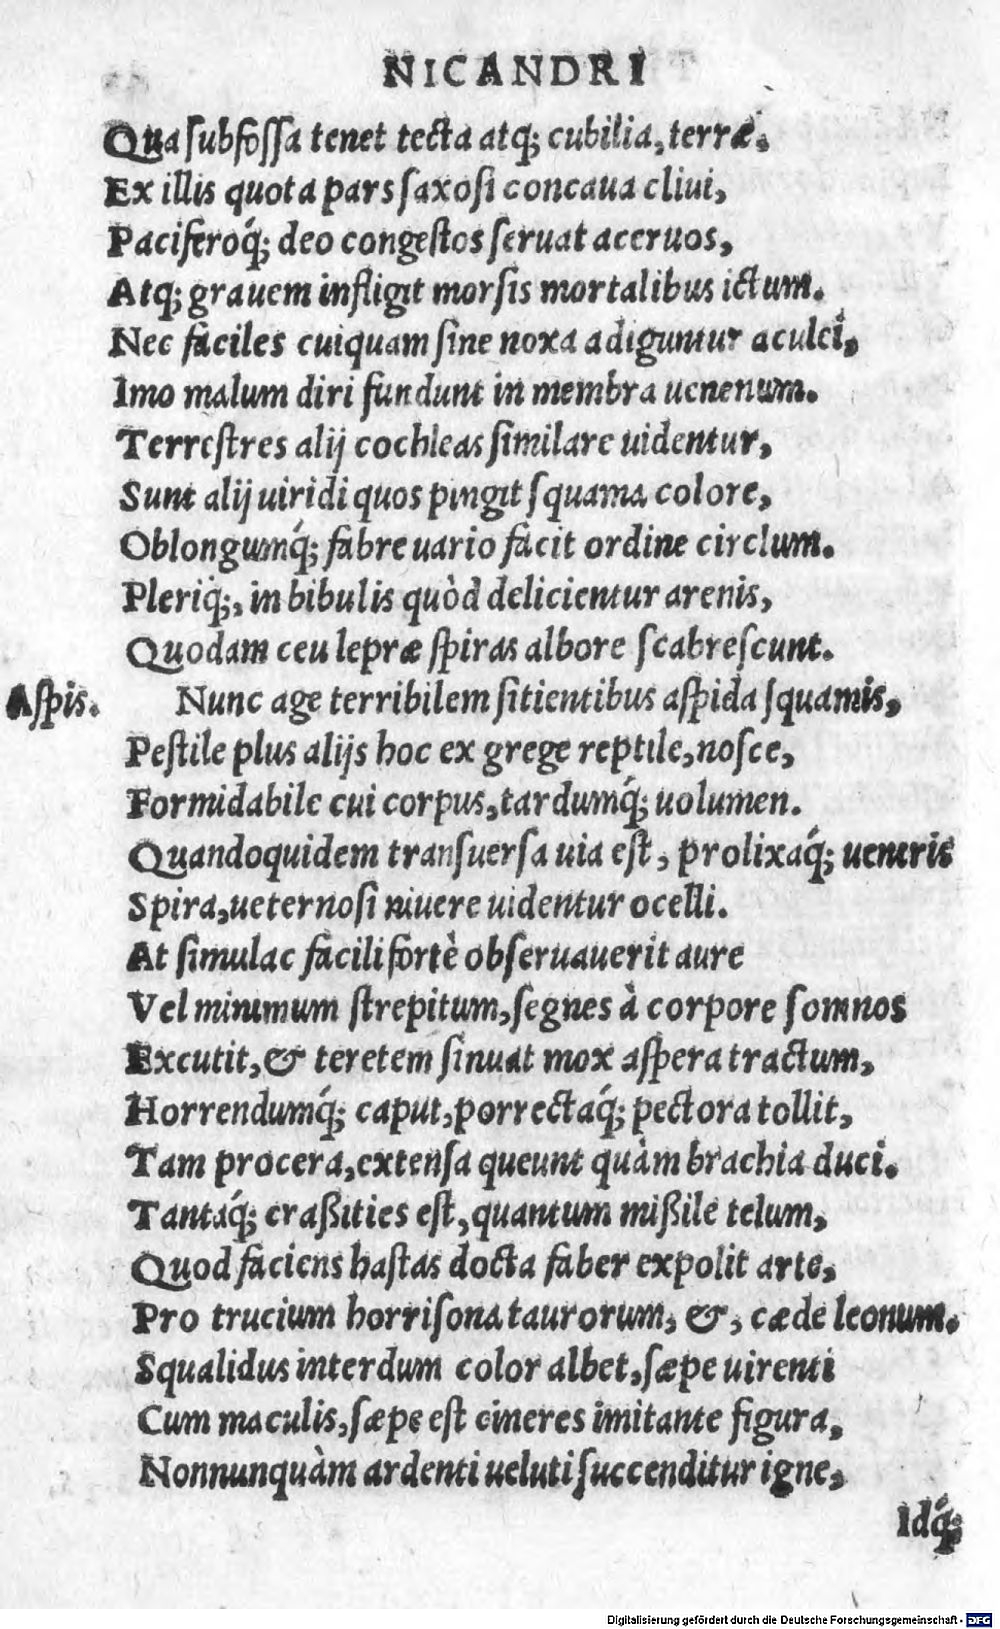 NICANDRI
Qua subfossa tenet tecta atq; cubilia, terræ.
Ex illis quota pars saxosi concaua cliui,
Paciferoq́; deo congestos seruat aceruos,
Atq; grauem infligit morsis mortalibus ictum.
Nec faciles cuiquam sine noxa adiguntur aculei,
Imo malum diri fundunt in membra uenenum.
Terrestres alij cochleas similare uidentur,
Sunt alij uiridi quos pingit squama colore,
Oblongumq́; fabre uario facit ordine circlum.
Pleriq́;, in bibulis quòd delicientur arenis,
Quodam ceu lepræ spiras albore scabrescunt.
Aspis. Nunc age terribilem sitientibus aspida squamis,
Pestile plus alijs hoc ex grege reptile, nosce,
Formidabile cui corpus, tardumq́; uolumen.
Quandoquidem transuersa uia est, prolixaq́; uentris
Spira, ueternosi niuere uidentur ocelli.
At simulac facili fortè obseruauerit aure
Vel minimum strepitum, segnes à corpore somnos
Excutit, & teretem sinuat mox aspera tractum,
Horrendumq́; caput, porrectaq́; pectora tollit,
Tam procera, extensa queunt quàm brachia duci.
Tantaq́; craßities est, quantum mißile telum,
Quod faciens hastas docta faber expolit arte,
Pro trucium horrisona taurorum, &, cæde leonum.
Squalidus interdum color albet, sæpe uirenti
Cum maculis, sæpe est cineres imitante figura,
Nonnunquàm ardenti ueluti succenditur igne,
Idq́;
Digitalisierung gefördert durch die Deutsche Forschungsgemeinschaft - DFG